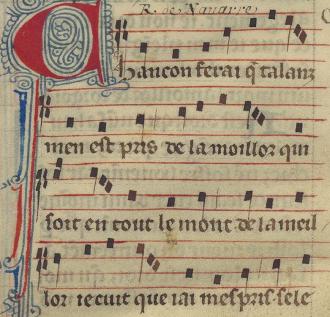 R. de Navarre
Chancon ferai q̃ talanz
men est pris de la moillor qui
soit en tout le mont de la meil
lor ie cuit que iai mespris. se le